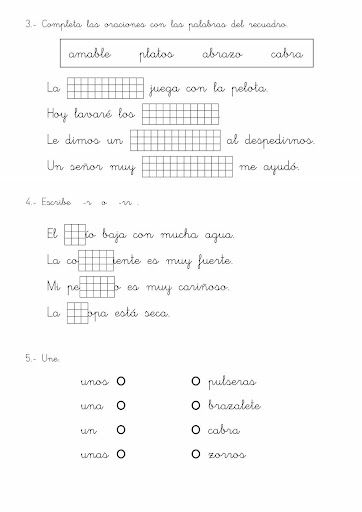 3.- Completa las oraciones con las palabras del recuadro.
amable platos abrazo cabra
La juega con la pelota.
Hoy lavaré los
Le dimos un al despedirnos.
Un señor muy me ayudó.
4.- Escribe -r o -rr .
El ío baja con mucha agua.
La co iente es muy fuerte.
Mi pe o es muy cariñoso.
La opa está seca.
5.- Une.
unos O O pulseras
una O O brazalete
un O O cabra
unas O O zorros